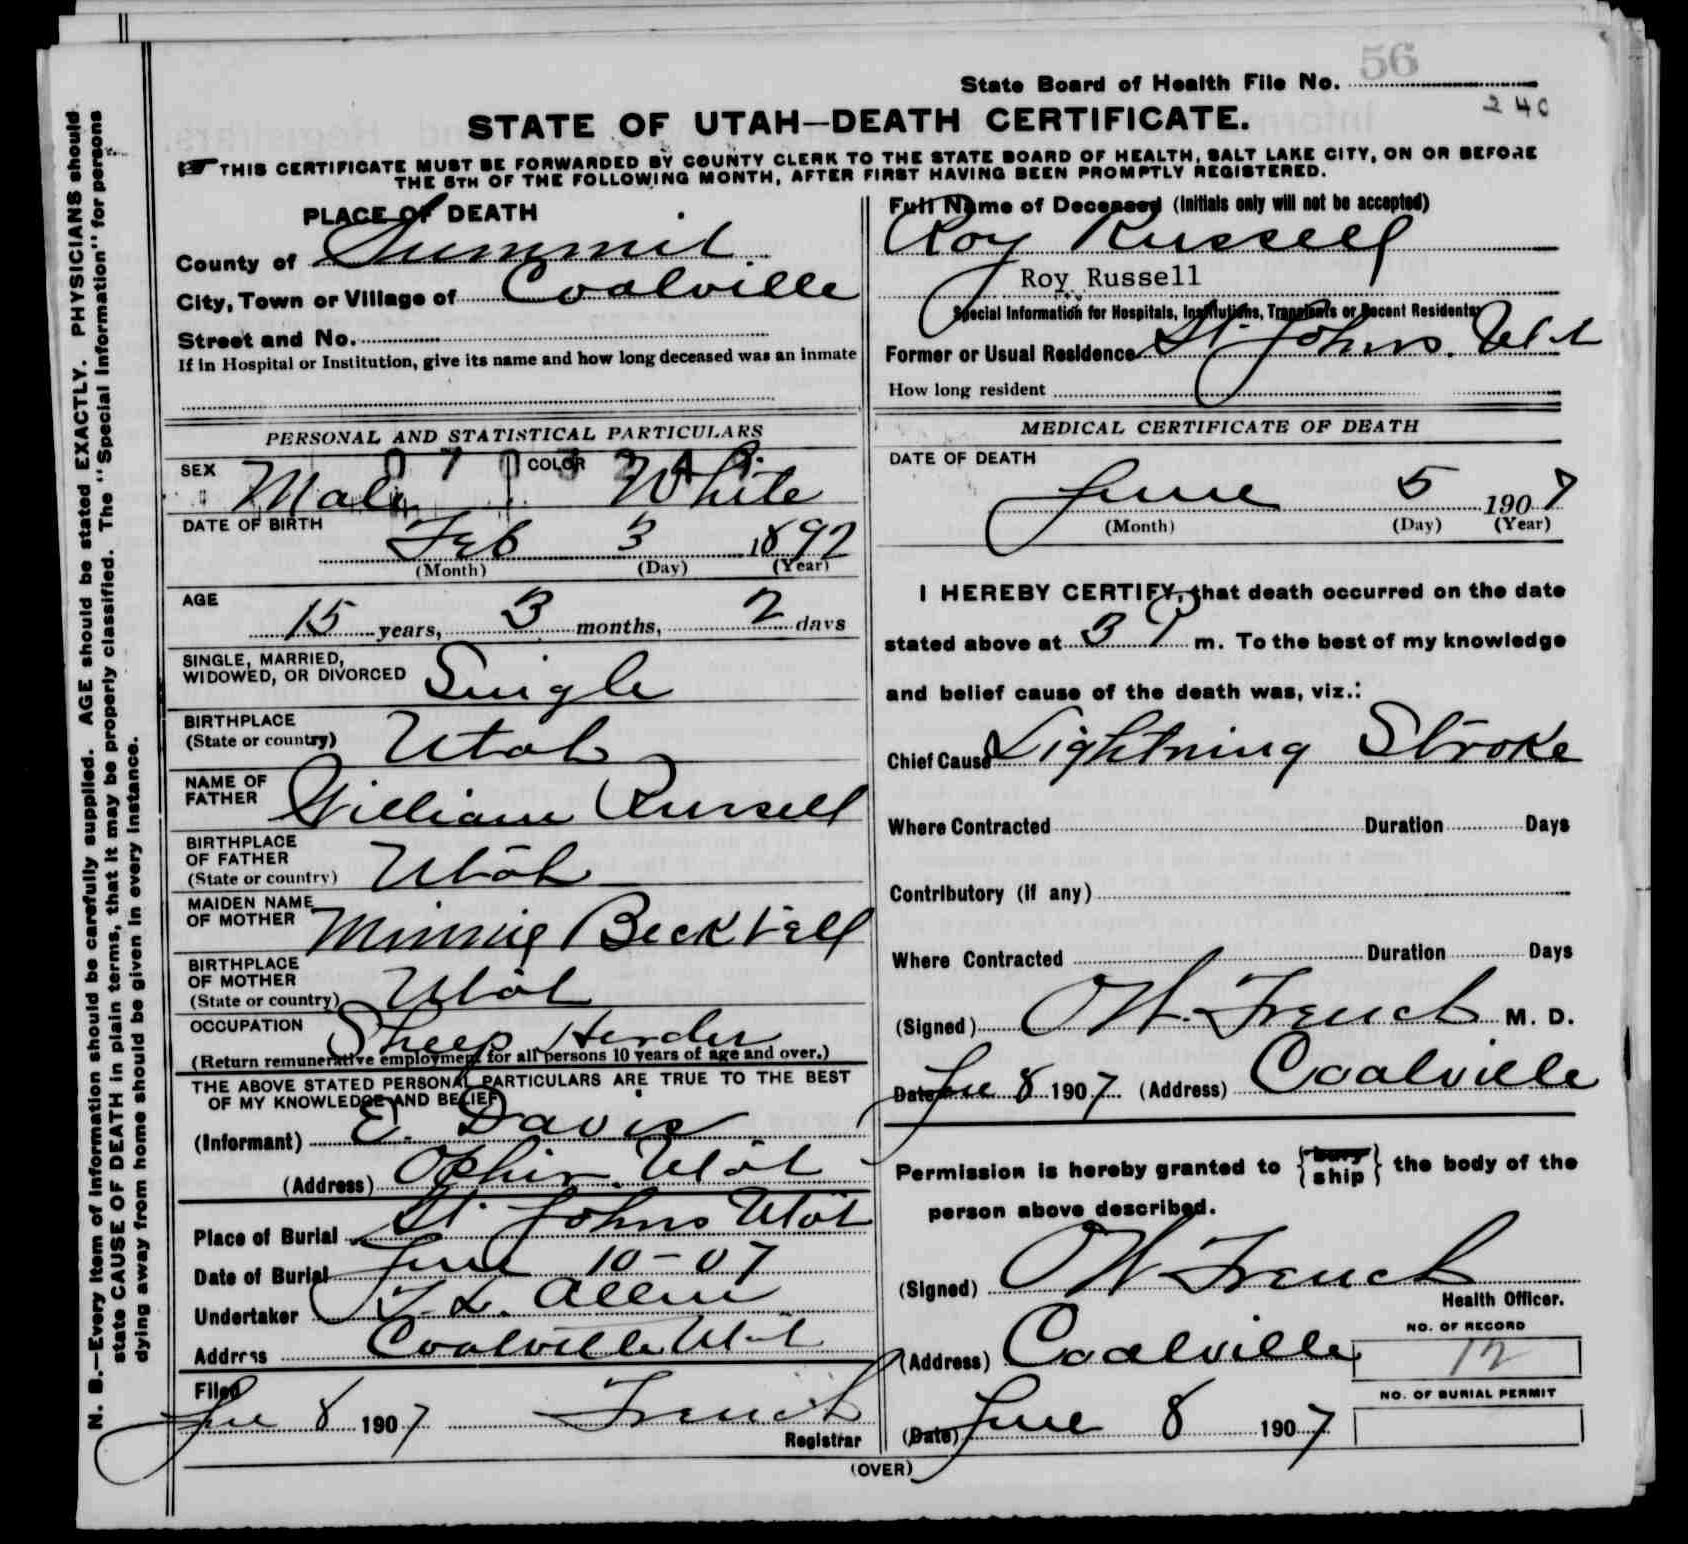 56
State Board of Health File No.
240
STATE OF UTAH—DEATH CERTIFICATE.
THIS CERTIFICATE MUST BE FORWARDED BY COUNTY CLERK TO THE STATE BOARD OF HEALTH, SALT LAKE CITY, ON OR BEFORE
THE 5TH OF THE FOLLOWING MONTH, AFTER FIRST HAVING BEEN PROMPTLY REGISTERED.
PLACE OF DEATH
County of Summit
City, Town or Village of Coalville
Street and No.
If in Hospital or Institution, give its name and how long deceased was an inmate
Full Name of Deceased (Initials only will not be accepted)
Roy Russell
Roy Russell
Special Information for Hospitals, Institutions, Transients or Recent Residents
Former or Usual Residence St. Johns. Utah
How long resident
PERSONAL AND STATISTICAL PARTICULARS
SEX Male COLOR White
DATE OF BIRTH
Feb 3 1892
(Month) (Day) (Year)
AGE
15 years, 3 months, 2 days
SINGLE, MARRIED,
WIDOWED, OR DIVORCED Single
BIRTHPLACE
(State or country) Utah
NAME OF
FATHER William Russell
BIRTHPLACE
OF FATHER
(State or country) Utah
MAIDEN NAME
OF MOTHER Minnie Beckstell
BIRTHPLACE
OF MOTHER
(State or country) Utah
OCCUPATION Sheep Herder
(Return remunerative employment for all persons 10 years of age and over.)
THE ABOVE STATED PERSONAL PARTICULARS ARE TRUE TO THE BEST
OF MY KNOWLEDGE AND BELIEF
(Informant) E. Davis
(Address) Ophir. Utah
Place of Burial St. Johns Utah
Date of Burial June 10-07
Undertaker Allen
Address Coalville Utah
Filed
June 8 1907 French
Registrar
MEDICAL CERTIFICATE OF DEATH
DATE OF DEATH
June 5 1907
(Month) (Day) (Year)
I HEREBY CERTIFY, that death occurred on the date
stated above at 3 P m. To the best of my knowledge
and belief cause of the death was, viz.:
Chief Cause Lightning Stroke
Where Contracted Duration Days
Contributory (if any)
Where Contracted Duration Days
(Signed) O W. French M. D.
Date June 8 1907 (Address) Coalville
Permission is hereby granted to { bury ship } the body of the
person above described.
(Signed) O W French
Health Officer.
(Address) Coalville
NO. OF RECORD
12
NO. OF BURIAL PERMIT
(Date) June 8 1907
(OVER)
N. B.—Every item of information should be carefully supplied. AGE should be stated EXACTLY. PHYSICIANS should
state CAUSE OF DEATH in plain terms, that it may be properly classified. The "Special Information" for persons
dying away from home should be given in every instance.